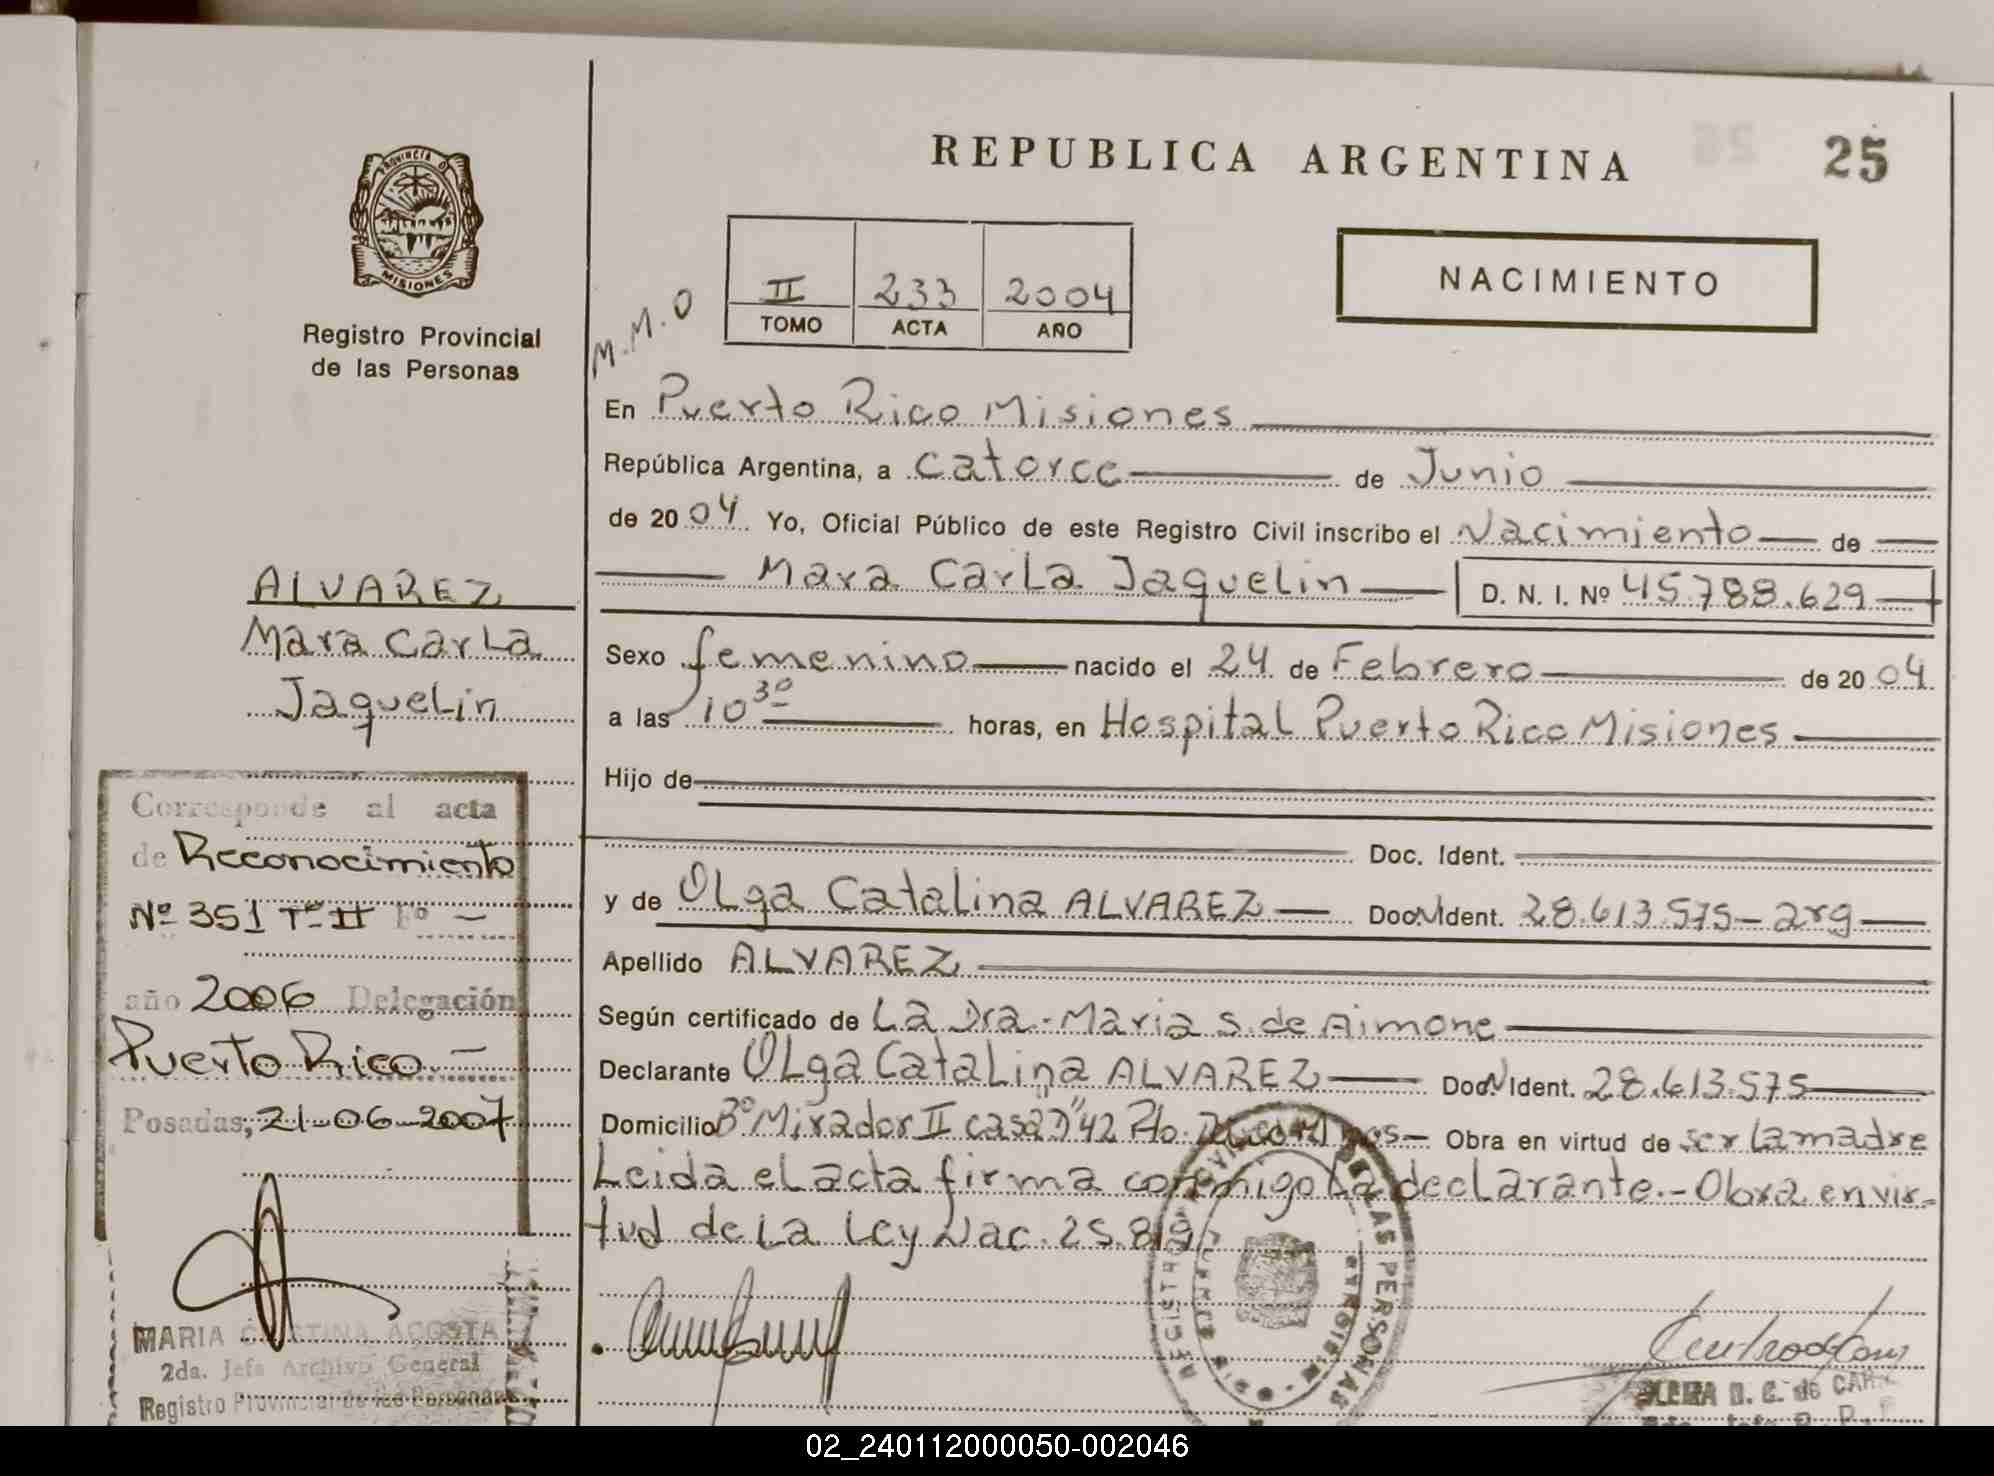 REPUBLICA ARGENTINA
25
PROVINCIA D
MISIONES
Registro Provincial
de las Personas
II 233 2004
TOMO ACTA AÑO
NACIMIENTO
M.M.O
En Puerto Rico Misiones
República Argentina, a catorce de Junio
de 2004 Yo, Oficial Público de este Registro Civil inscribo el Nacimiento de
Mara Carla Jaquelin D. N. I. Nº 45.788.629
Sexo femenino nacido el 24 de Febrero de 2004
a las 10 30 horas, en Hospital Puerto Rico Misiones
Hijo de
Doc. Ident.
y de Olga Catalina ALVAREZ Doc. Ident. 28.613.575 - arg
Apellido ALVAREZ
Según certificado de La Dra. Maria S. de Aimone
Declarante Olga Catalina ALVAREZ Doc. Ident. 28.613.575
Domicilio Bº Mirador II casa D" 42 Pto. Obra en virtud de ser la madre
Leida el acta firma conmigo la declarante.- Obra en vir-
tud de la Ley Nac. 25.819
ALVAREZ
Mara Carla
Jaquelin
Corresponde al acta
de Reconocimiento
Nº 351 Tº II Fº -
año 2006 Delegación
Puerto Rico.-
Posadas, 21-06-2007
MARIA CRISTINA ACOSTA
2da. Jefa Archivo General
Registro Provincial de las Personas
DE LAS PERSONAS
02_240112000050-002046